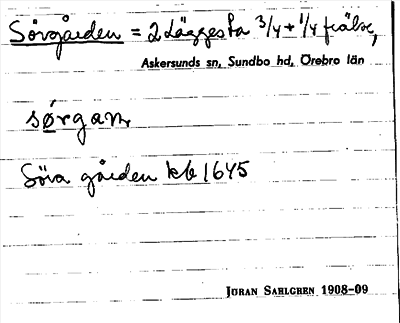 Sörgården = 2 Läggesta 3/4 + 1/4 frälse,
Askersunds sn, Sundbo hd, Örebro län
sørgan
Söra gården kb 1645
JÖRAN SAHLGREN 1908-09